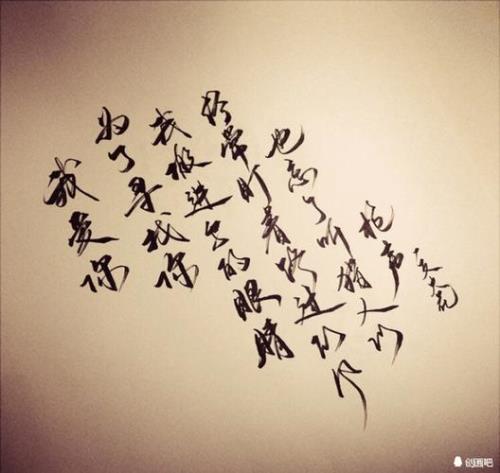 我爱你
为了寻找你
我搬进鸟的眼睛
经常盯着路过的风
也忘了听猎人的
枪声
创画吧